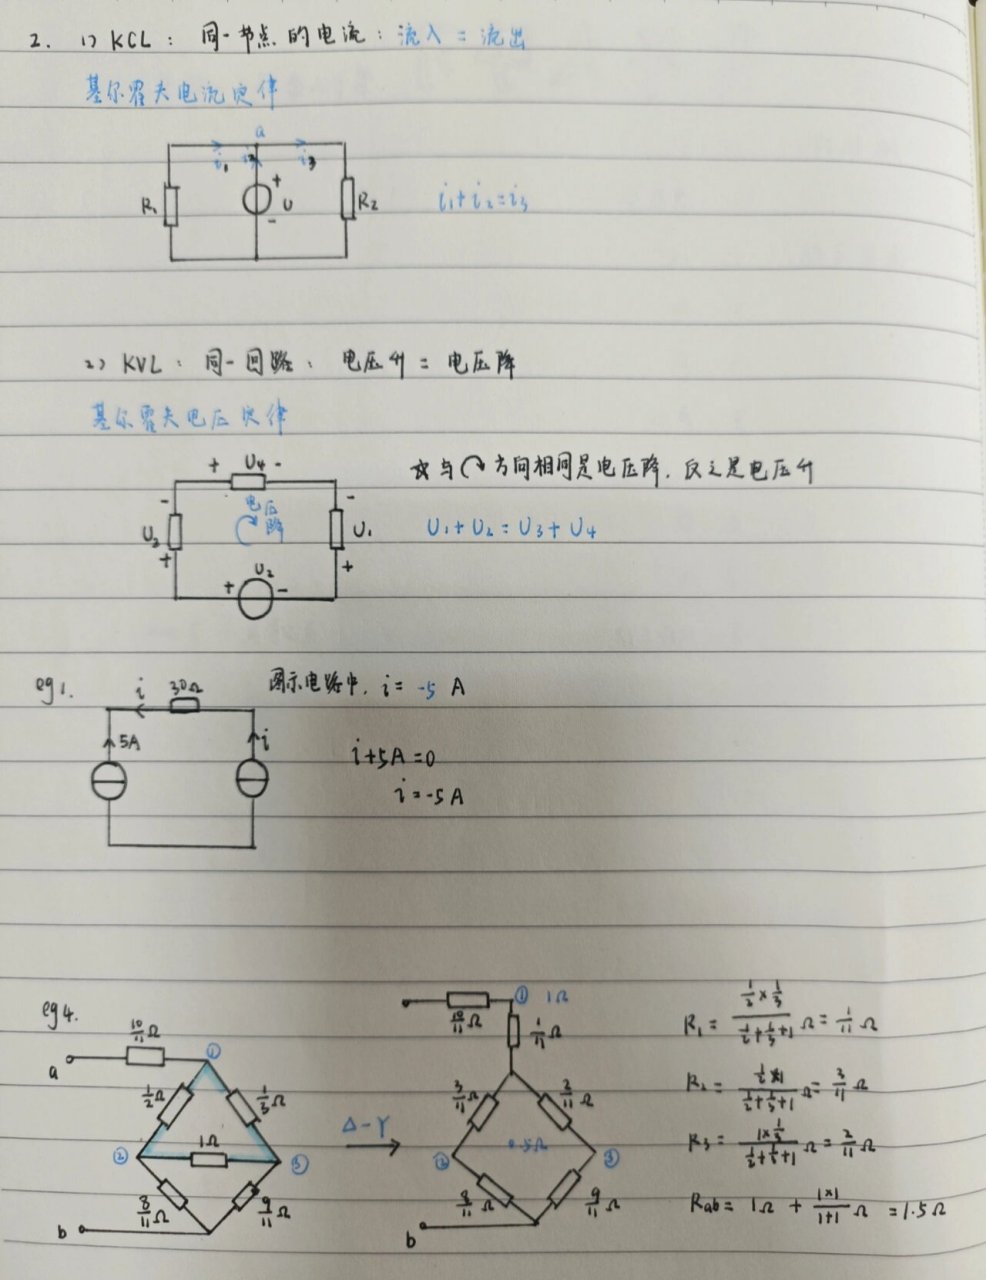 2. 1) KCL: 同一节点的电流: 流入 = 流出
基尔霍夫电流定律
a
i₁ i₂ i₃
+
R₁ U R₂ i₁+i₂=i₃
-
2) KVL: 同一回路: 电压升 = 电压降
基尔霍夫电压定律
+ U₄ -
☆与↷方向相同是电压降,反之是电压升
- 电压降 -
U₃ U₁ U₁+U₂=U₃+U₄
+ +
+ U₂ -
eg1. i 30Ω 图示电路中, i= -5 A
5A i
i+5A=0
i=-5A
eg4.
a 10/11Ω ①
1/2Ω 1/3Ω
1Ω
② ③
8/11Ω 9/11Ω
b
Δ-Y
10/11Ω ① 1Ω
1/11Ω
3/11Ω 2/11Ω
② 0.5Ω ③
8/11Ω 9/11Ω
b
R₁= (1/2×1/3)/(1/2+1/3+1) Ω= 1/11 Ω
R₂= (1/2×1)/(1/2+1/3+1) Ω= 3/11 Ω
R₃= (1×1/3)/(1/2+1/3+1) Ω= 2/11 Ω
Rab= 1Ω + (1×1)/(1+1) Ω =1.5Ω